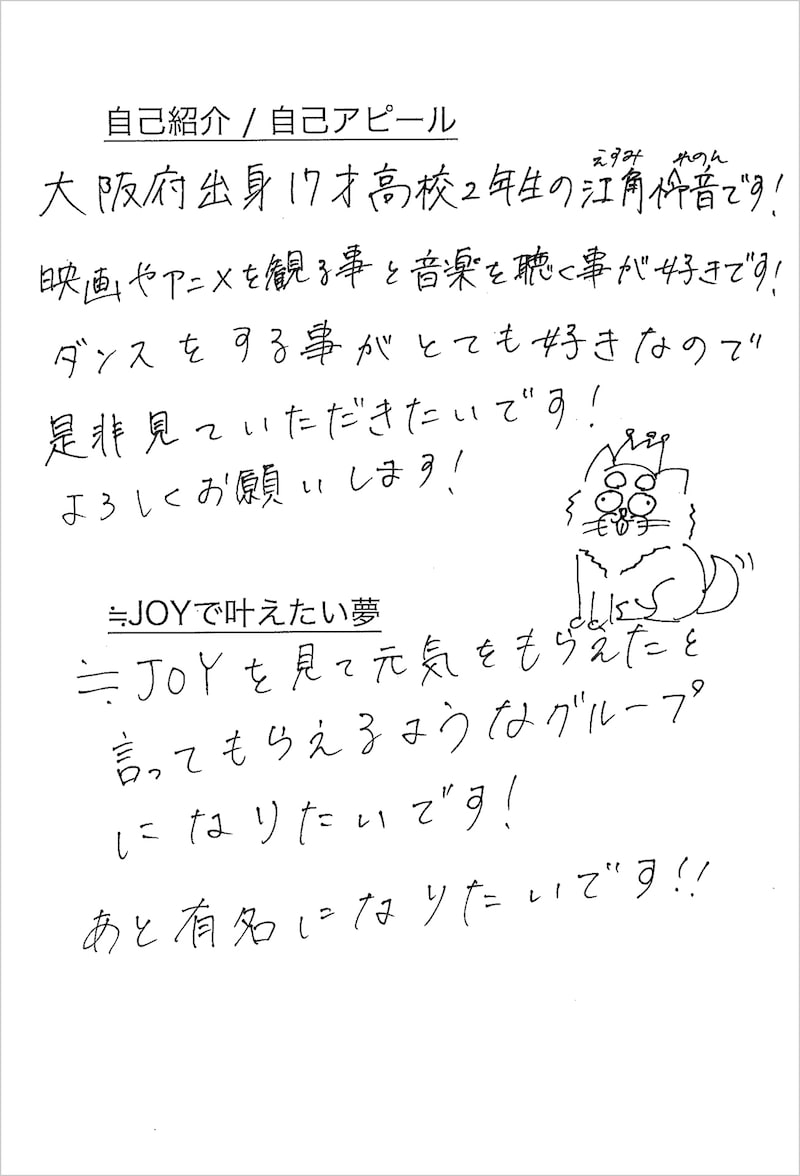 自己紹介 / 自己アピール
えすみ れのん
大阪府出身17才高校2年生の江角怜音です!
映画やアニメを観る事と音楽を聴く事が好きです!
ダンスをする事がとても好きなので
是非見ていただきたいです!
よろしくお願いします!
≒JOYで叶えたい夢
≒JOYを見て元気をもらえたと
言ってもらえるようなグループ
になりたいです!
あと有名になりたいです!!